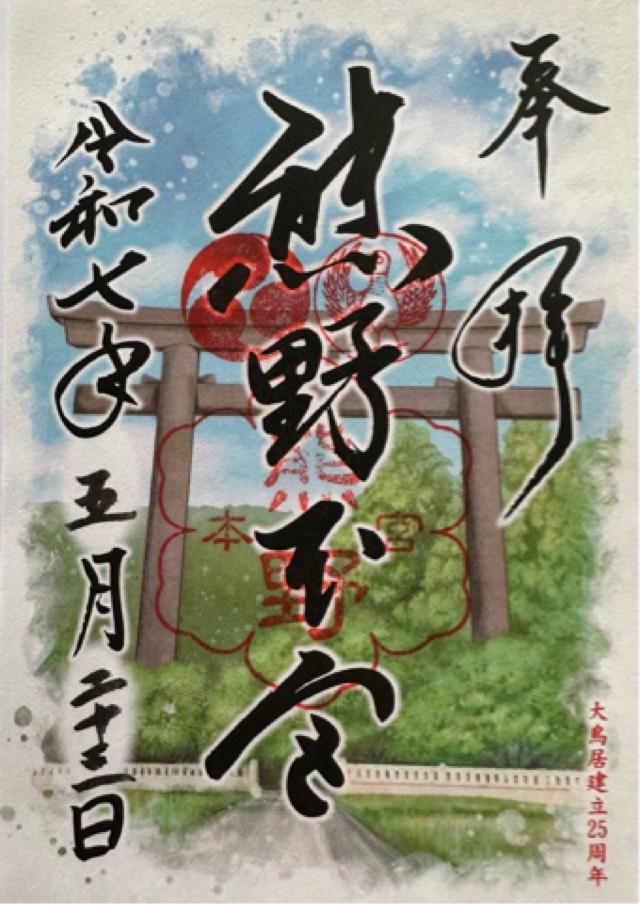 奉拝
熊野本宮
熊野
本宮
令和七年五月二十三日
大鳥居建立25周年